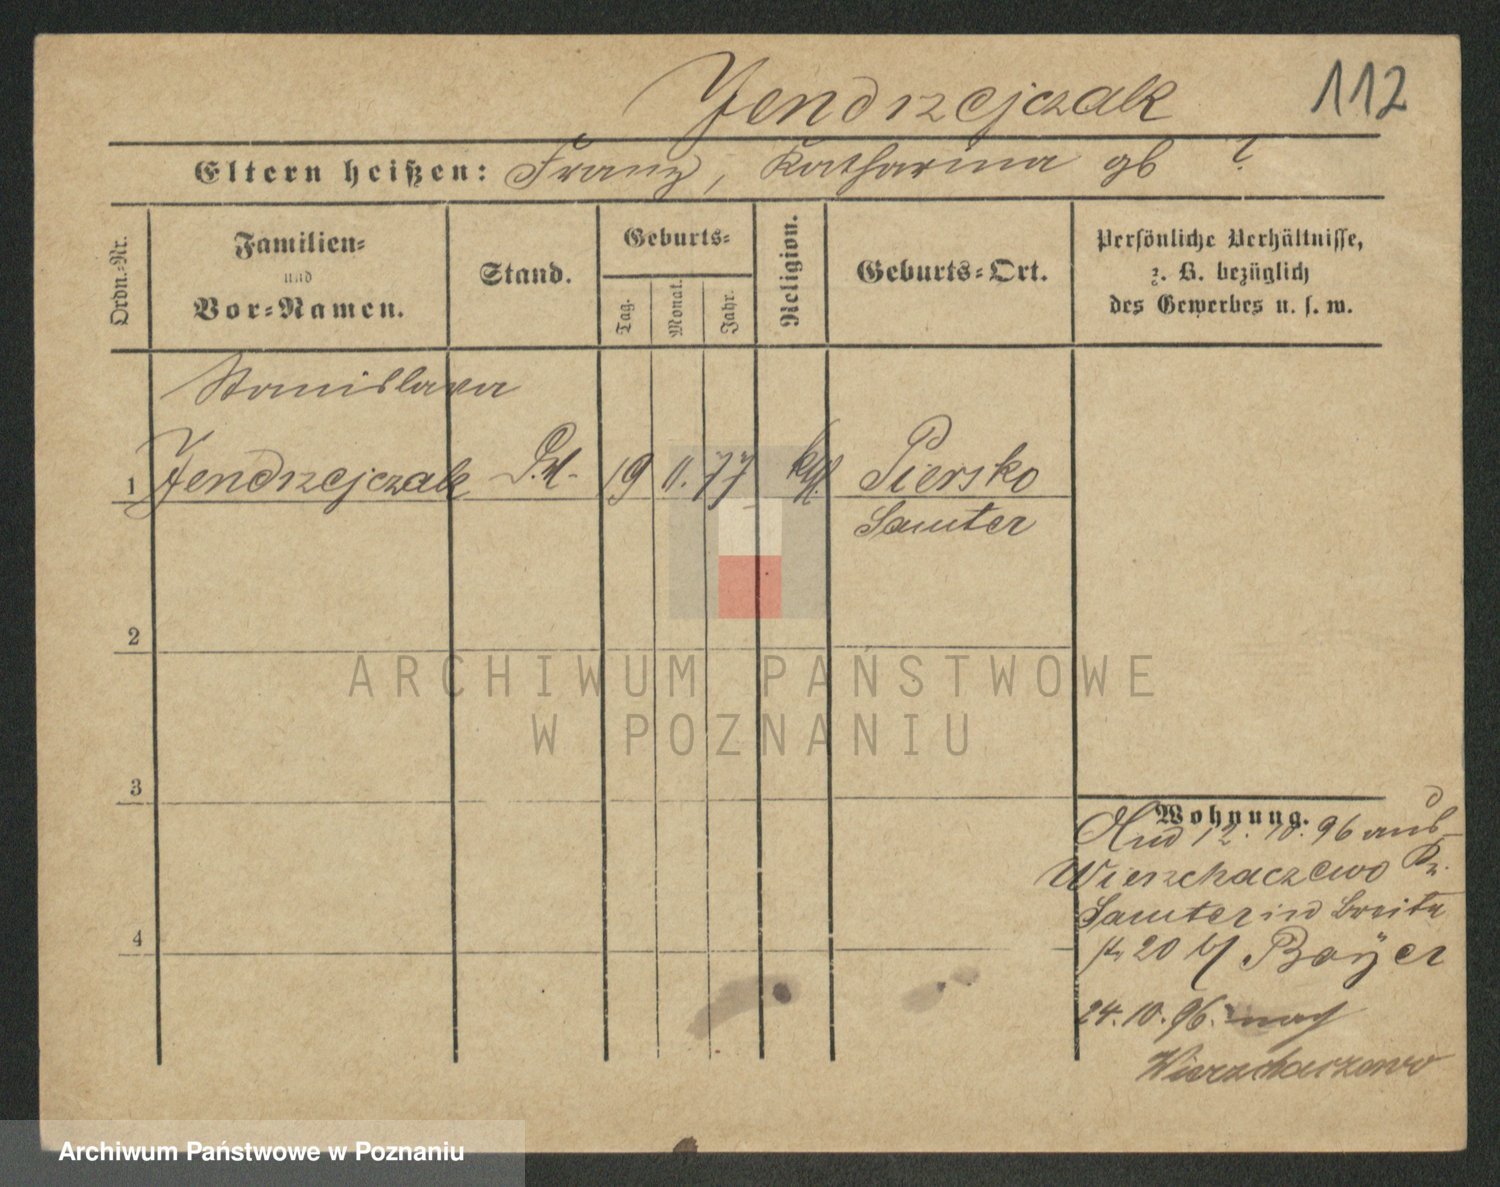 Jendrzejczak
112
Eltern heißen: Franz, Katharina gb ?
Ordn.-Nr.
Familien-
und
Vor-Namen.
Stand.
Geburts-
Tag.
Monat.
Jahr.
Religion.
Geburts-Ort.
Persönliche Verhältnisse,
z. B. bezüglich
des Gewerbes u. s. w.
Stanislava
1 Jendrzejczak 19 11. 77 kth. Piersko
Samter
2
3
4
ARCHIWUM PAŃSTWOWE
W POZNANIU
Wohnung.
12. 10. 96 aus
Wierzchaczewo Kr.
Samter in Breite
str 20 b/ Bayer
24. 10. 96. nach
Wierzchaczewo
Archiwum Państwowe w Poznaniu